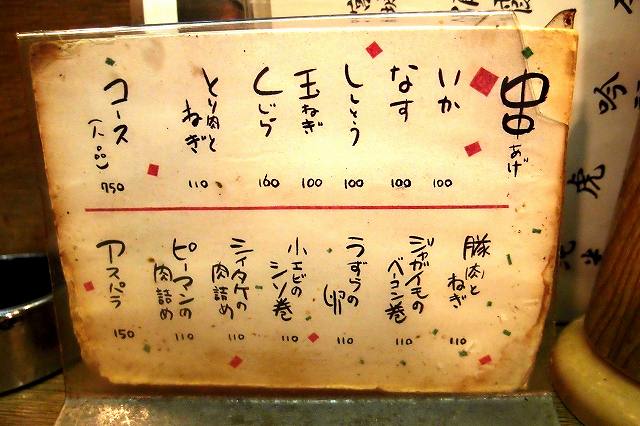 串あげ
いか
100
なす
100
ししとう
100
玉ねぎ
100
くじら
160
とり肉と
ねぎ
110
コース
750
豚肉と
ねぎ
110
ジャガイモの
ベーコン巻
110
うずらの
卵
110
小エビの
シソ巻
110
シイタケの
肉詰め
110
ピーマンの
肉詰め
110
アスパラ
150
吟
虎